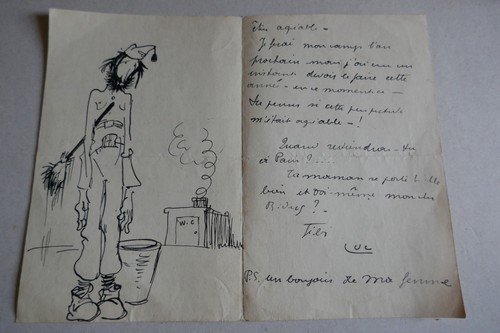 W-C
être agréable -
Je ferai mon camp l'an
prochain mais j'ai cru un
instant devoir le faire cette
année - en ce moment-ci -
Tu penses si cette perspective
m'était agréable - !
Quand reviendras-tu
à Paris ? ....
Ta maman se porte-t-elle
bien et toi-même mon cher
?
Luc
P.S. un bonjour de ma femme